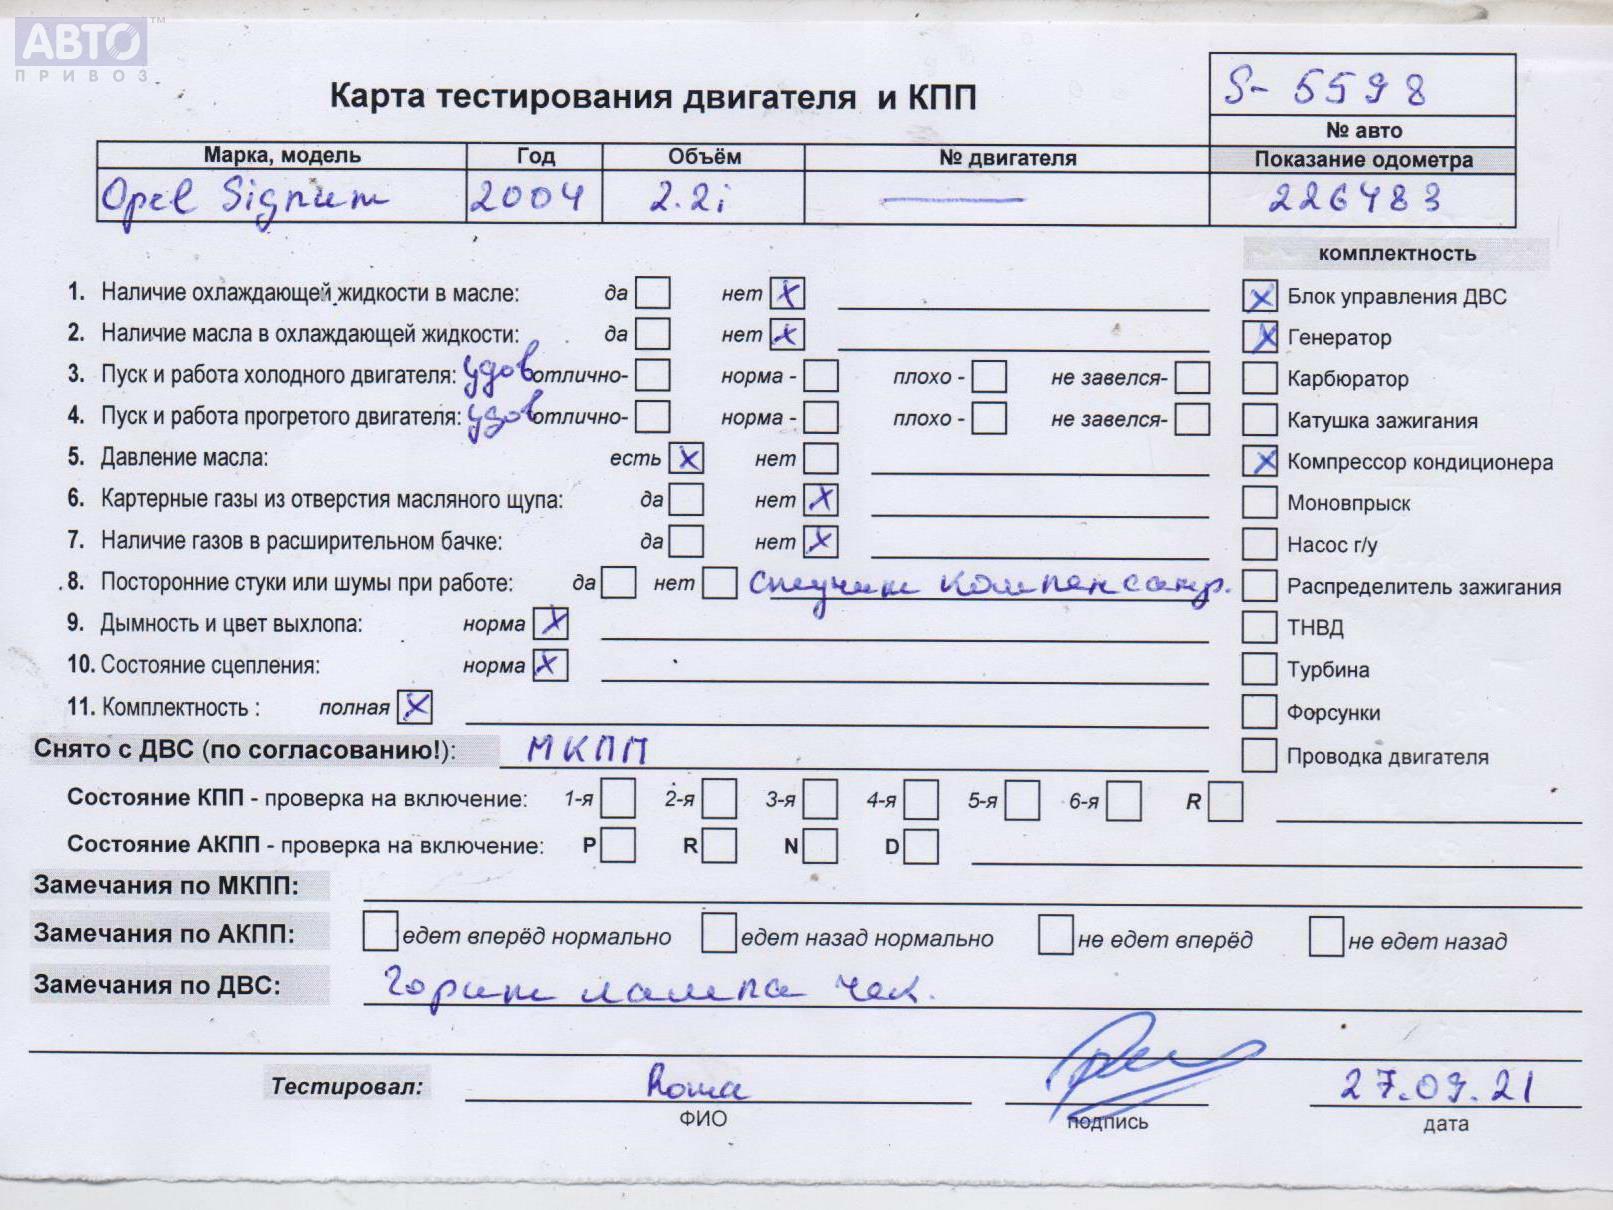 АВТО™
ПРИВОЗ
Карта тестирования двигателя и КПП
S-5598
№ авто
Марка, модель Год Объём № двигателя Показание одометра
Opel Signum 2004 2.2i — 226483
комплектность
1. Наличие охлаждающей жидкости в масле: да нет X Блок управления ДВС X
2. Наличие масла в охлаждающей жидкости: да нет X Генератор X
3. Пуск и работа холодного двигателя: удов отлично- норма - плохо - не завелся- Карбюратор
4. Пуск и работа прогретого двигателя: удов отлично- норма - плохо - не завелся- Катушка зажигания
5. Давление масла: есть X нет X Компрессор кондиционера
6. Картерные газы из отверстия масляного щупа: да нет X Моновпрыск
7. Наличие газов в расширительном бачке: да нет X Насос г/у
8. Посторонние стуки или шумы при работе: да нет стучит компенсатр. Распределитель зажигания
9. Дымность и цвет выхлопа: норма X ТНВД
10. Состояние сцепления: норма X Турбина
11. Комплектность : полная X Форсунки
Снято с ДВС (по согласованию!): МКПП Проводка двигателя
Состояние КПП - проверка на включение: 1-я 2-я 3-я 4-я 5-я 6-я R
Состояние АКПП - проверка на включение: P R N D
Замечания по МКПП:
Замечания по АКПП: едет вперёд нормально едет назад нормально не едет вперёд не едет назад
Замечания по ДВС: Горит лампа чек.
Тестировал: Рома 27.09.21
ФИО подпись дата